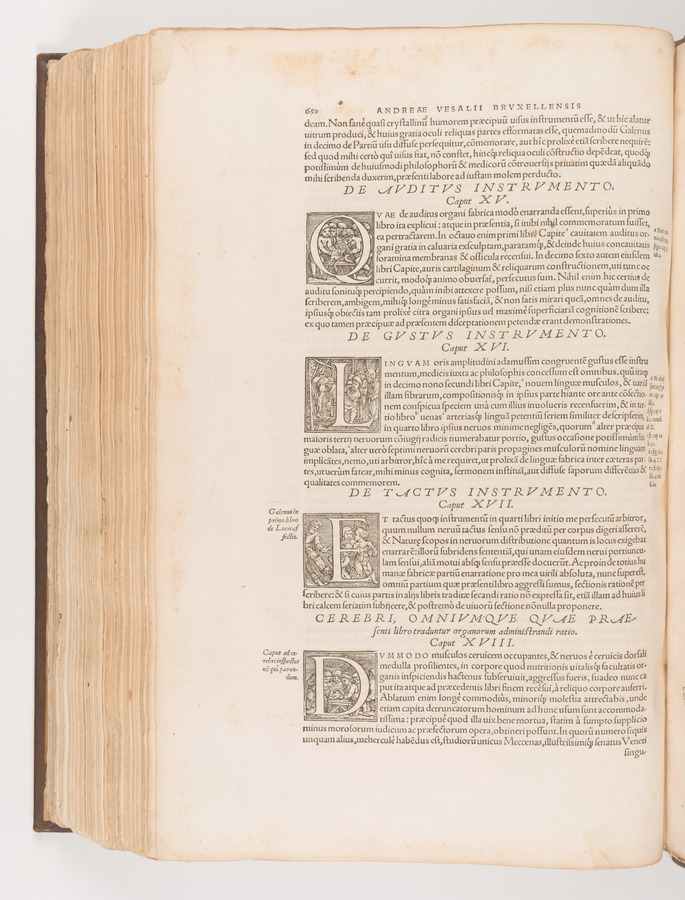 650 ANDREAE VESALII BRVXELLENSIS
deam. Non sanè quasi crystallinũ humorem præcipuũ uisus instrumentũ esse, & ut hic alatur
uitrum produci, & huius gratia oculi reliquas partes efformatas esse, quemadmodũ Galenus
in decimo de Partiũ usu diffuse persequitur, cõmemorare, aut hic prolixè etiã scribere nequirẽ:
sed quod mihi certò quî uisus fiat, nõ constet, hincq́; reliqua oculi cõstructio depẽdeat, quodq́;
potissimùm de huiusmodi philosophorũ & medicorũ cõtrouersijs priuatim quædã aliquãdo
mihi scribenda duxerim, præsenti labore ad iustam molem perducto.
DE AVDITVS INSTRVMENTO.
Caput XV.
QVAE de auditus organi fabrica modò enarranda essent, superiùs in primo
libro ita explicui: atque in præsentia, si inibi nihil commemoratum fuisset,
ea pertractarem. In octauo enim primi libri Capite cauitatem auditus or-
gani gratia in caluaria exsculptam, paratamq́;, & deinde huius concauitatis
foramina membranas & ossicula recensui. In decimo sexto autem eiusdem
libri Capite, auris cartilaginum & reliquarum constructionem, uti tunc oc
currit, modoq́; animo obuersat, persecutus sum. Nihil enim hic certius de
auditu sonituq́; percipiendo, quàm inibi attexere possum, nisi etiam plus nunc quàm dum illa
scriberem, ambigem, mihiq́; longè minus satisfaciã, & non satis mirari queã, omnes de auditu,
ipsiusq́; obiectis tam prolixè citra organi ipsius uel maximè superficiariã cognitionẽ scribere:
ex quo tamen præcipuæ ad præsentem disceptationem petendæ erant demonstrationes.
DE GVSTVS INSTRVMENTO.
Caput XVI.
LINGVAM oris amplitudini adamussim congruentẽ gustus esse instru
mentum, medicis iuxta ac philosophis concessum est omnibus. quũ itaq́;
in decimo nono secundi libri Capite, nouem linguæ musculos, & uariã
illam fibrarum, compositionisq́; in ipsius parte hiante ore ante cõsectio-
nem conspicuæ speciem unà cum illius inuolucris recensuerim, & in ter-
tio libro uenas arteriasq́; linguã petentiũ seriem similiter descripserim,
in quarto libro ipsius neruos minime negligẽs, quorum alter præcipua
maioris tertij neruorum cõiugij radicis numerabatur portio, gustus occasione potissimùm lin
guæ oblata, alter uerò septimi neruorũ cerebri paris propagines musculorũ nomine linguam
implicãtes, nemo, uti arbitror, hîc à me requiret, ut prolixã de linguæ fabrica inter cæteras par
tes, ut uerùm fatear, mihi minus cognita, sermonem instituã, aut diffuse saporum differẽtias &
qualitates commemorem.
DE TACTVS INSTRVMENTO.
Caput XVII.
Galenus in
primo libro
de Locis af
fectis.
ET tactus quoq́; instrumentũ in quarti libri initio me persecutũ arbitror,
quum nullum neruũ tactus sensu nõ præditũ per corpus digeri assererẽ,
& Naturę scopos in neruorum distributione quantum is locus exigebat
enarrarẽ: illorũ subridens sententiã, qui unam eiusdem nerui portiuncu-
lam sensui, aliã motui absq́; sensu præesse docuerũt. Ac proin de totius hu
manæ fabricæ partiũ enarratione pro mea uirili absoluta, nunc superest,
omniũ partium quæ præsenti libro aggressi sumus, sectionis rationẽ per
scribere: & si cuius partis in alijs libris traditæ secandi ratio nõ expressa sit, etiã illam ad huius li
bri calcem seriatim subijcere, & postremò de uiuorũ sectione nõnulla proponere.
CEREBRI, OMNIVMQVE QVAE PRAE-
senti libro traduntur organorum administrandi ratio.
Caput XVIII.
Caput ad ce-
rebri inspectio
nẽ quî paran-
dum.
DVMMODO musculos ceruicem occupantes, & neruos è ceruicis dorsali
medulla prosilientes, in corpore quod nutritionis uitalisq́; facultatis or-
ganis inspiciendis hactenus subseruiuit, aggressus fueris, suadeo nunc ca
put ita atque ad præcedentis libri finem recẽsui, à reliquo corpore auferri.
Ablatum enim longè commodiùs, minoriq́; molestia attrectabis, unde
etiam capita detruncatorum hominum ad hunc usum sunt accommoda-
tissima: præcipuè quod illa uix bene mortua, statim à sumpto supplicio
minus morosorum iudicum ac præfectorum opera, obtineri possunt. In quorũ numero si quis
unquam alius, mehercule habẽdus est, studiorũ unicus Mecœnas, illustrissimiq́; senatus Veneti
singu-